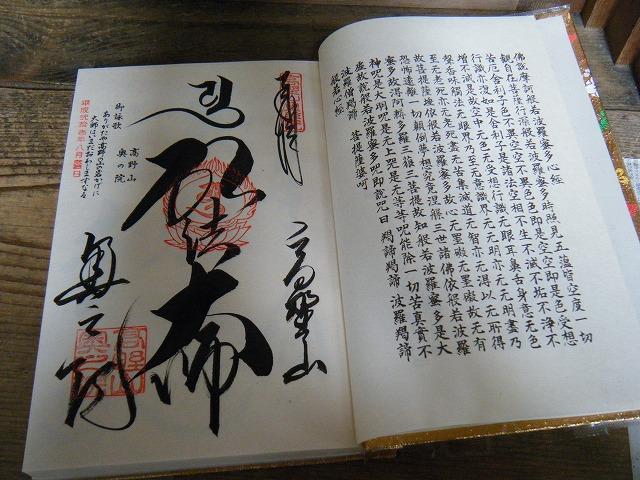 佛説摩訶般若波羅蜜多心経
観自在菩薩行深般若波羅蜜多時照見五蘊皆空度一切
苦厄舎利子色不異空空不異色色即是空空即是色受想
行識亦復如是舎利子是諸法空相不生不滅不垢不浄不
増不減是故空中无色无受想行識无眼耳鼻舌身意无色
聲香味觸法无眼界乃至无意識界无无明亦无无明盡乃
至无老死亦无老死盡无苦集滅道无智亦无得以无所得
故菩提薩埵依般若波羅蜜多故心无罣礙无罣礙故无有
恐怖遠離一切顛倒夢想究竟涅槃三世諸佛依般若波羅
蜜多故得阿耨多羅三藐三菩提故知般若波羅蜜多是大
神呪是大明呪是无上呪是无等等呪能除一切苦真實不
虚故説般若波羅蜜多呪即説呪曰 羯諦羯諦 波羅羯諦
波羅僧羯諦 菩提薩婆訶
般若心経
奉拝
高野山
弘法大師
奥之院
御詠歌 高野山 奥の院
ありがたや高野の山の岩かげに
大師はいまだおわしますなる
平成弐拾壱年八月